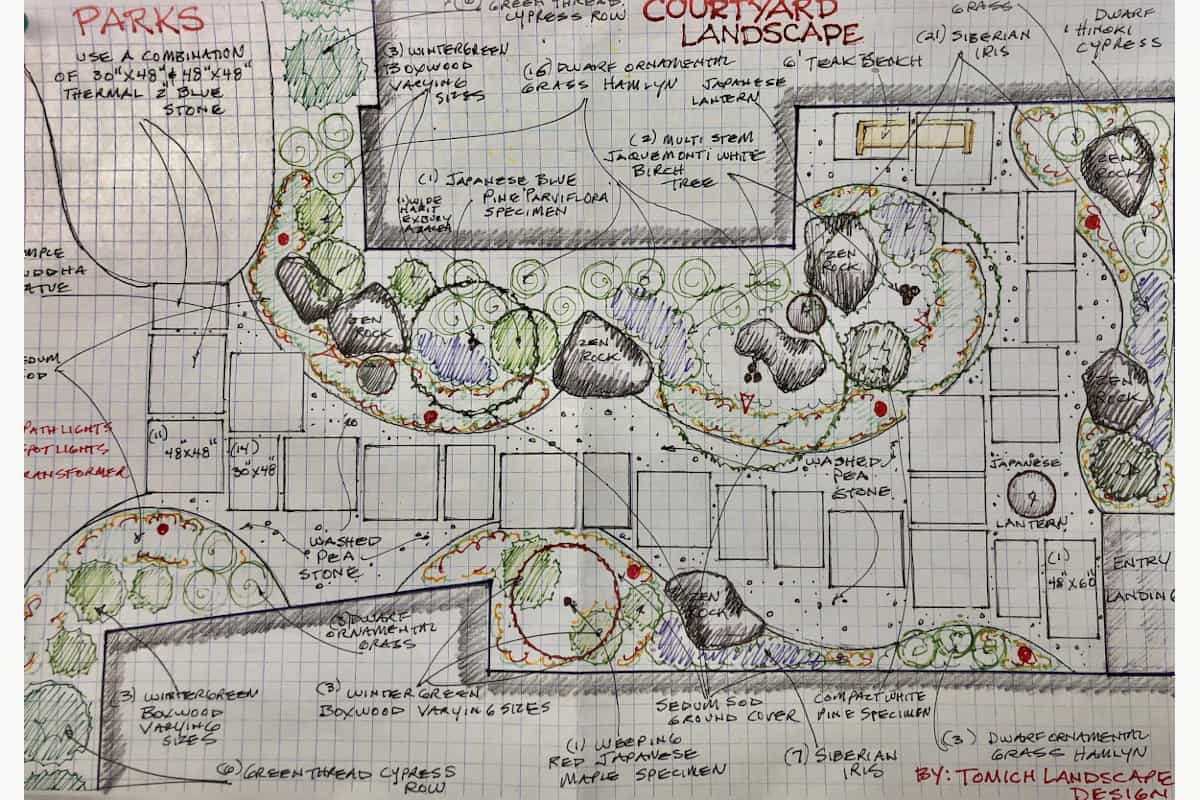 PARKS
USE A COMBINATION
OF 30"X48" & 48"X48"
THERMAL 2" BLUE
STONE
GREEN THREAD
CYPRESS ROW
COURTYARD
LANDSCAPE
GRASS
DWARF
HINOKI
CYPRESS
(21) SIBERIAN
IRIS
6' TEAK BENCH
(3) WINTERGREEN
BOXWOOD
VARYING
SIZES
(16) DWARF ORNAMENTAL
GRASS HAMLYN
JAPANESE
LANTERN
(2) MULTI STEM
JAQUEMONTI WHITE
BIRCH
TREE
(1) JAPANESE BLUE
PINE PARVIFLORA
SPECIMEN
(1) WIDE
HABIT
EXBURY
AZALEA
ZEN
ROCK
ZEN
ROCK
ZEN
ROCK
ZEN
ROCK
ZEN
ROCK
PATH LIGHTS
SPOT LIGHTS
TRANSFORMER
(11)
48"X48"
(14)
30"X48"
WASHED
PEA
STONE
WASHED
PEA
STONE
JAPANESE
LANTERN
(1)
48"X60"
ENTRY
LANDING
(8) DWARF
ORNAMENTAL
GRASS
(3) WINTERGREEN
BOXWOOD
VARYING
SIZES
(3) WINTERGREEN
BOXWOOD VARYING SIZES
SEDUM SOD
GROUND COVER
COMPACT WHITE
PINE SPECIMEN
(1) WEEPING
RED JAPANESE
MAPLE SPECIMEN
(7) SIBERIAN
IRIS
(3) DWARF ORNAMENTAL
GRASS HAMLYN
(6) GREEN THREAD CYPRESS
ROW
BY: TOMICH LANDSCAPE
DESIGN